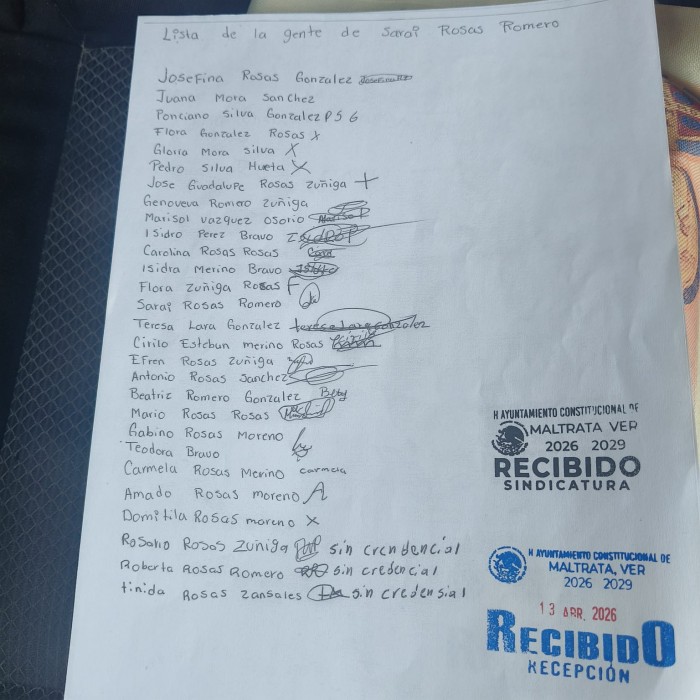 Lista de la gente de Sarai Rosas Romero
Josefina Rosas Gonzalez
Juana Mora Sanchez
Ponciano Silva Gonzalez P S G
Flora Gonzalez Rosas X
Gloria Mora Silva X
Pedro Silva Hueta X
Jose Guadalupe Rosas Zuñiga +
Genoveva Romero Zuñiga
Marisol Vazquez Osorio
Isidro Perez Bravo
Carolina Rosas Rosas
Isidra Merino Bravo
Flora Zuñiga Rosas F
Sarai Rosas Romero
Teresa Lara Gonzalez teresa Lara gonzalez
Cirilo Esteban merino Rosas
Efren Rosas Zuñiga
Antonio Rosas Sanchez
Beatriz Romero Gonzalez Bety
Mario Rosas Rosas
Gabino Rosas Moreno
Teodora Bravo
Carmela Rosas Merino carmela
Amado Rosas moreno A
Domitila Rosas moreno X
Rosario Rosas Zuñiga sin crendencial
Roberta Rosas Romero sin credencial
tinida Rosas Zansales sin credensial
H AYUNTAMIENTO CONSTITUCIONAL DE
MALTRATA VER
2026 2029
RECIBIDO
SINDICATURA
H AYUNTAMIENTO CONSTITUCIONAL DE
MALTRATA, VER
2026 2029
13 ABR. 2026
RECIBIDO
RECEPCIÓN